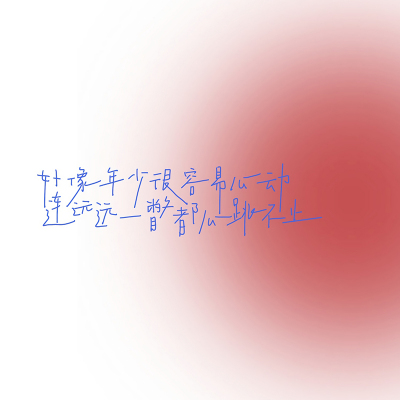 好像年少很容易心动
连远远一瞥都心跳不止